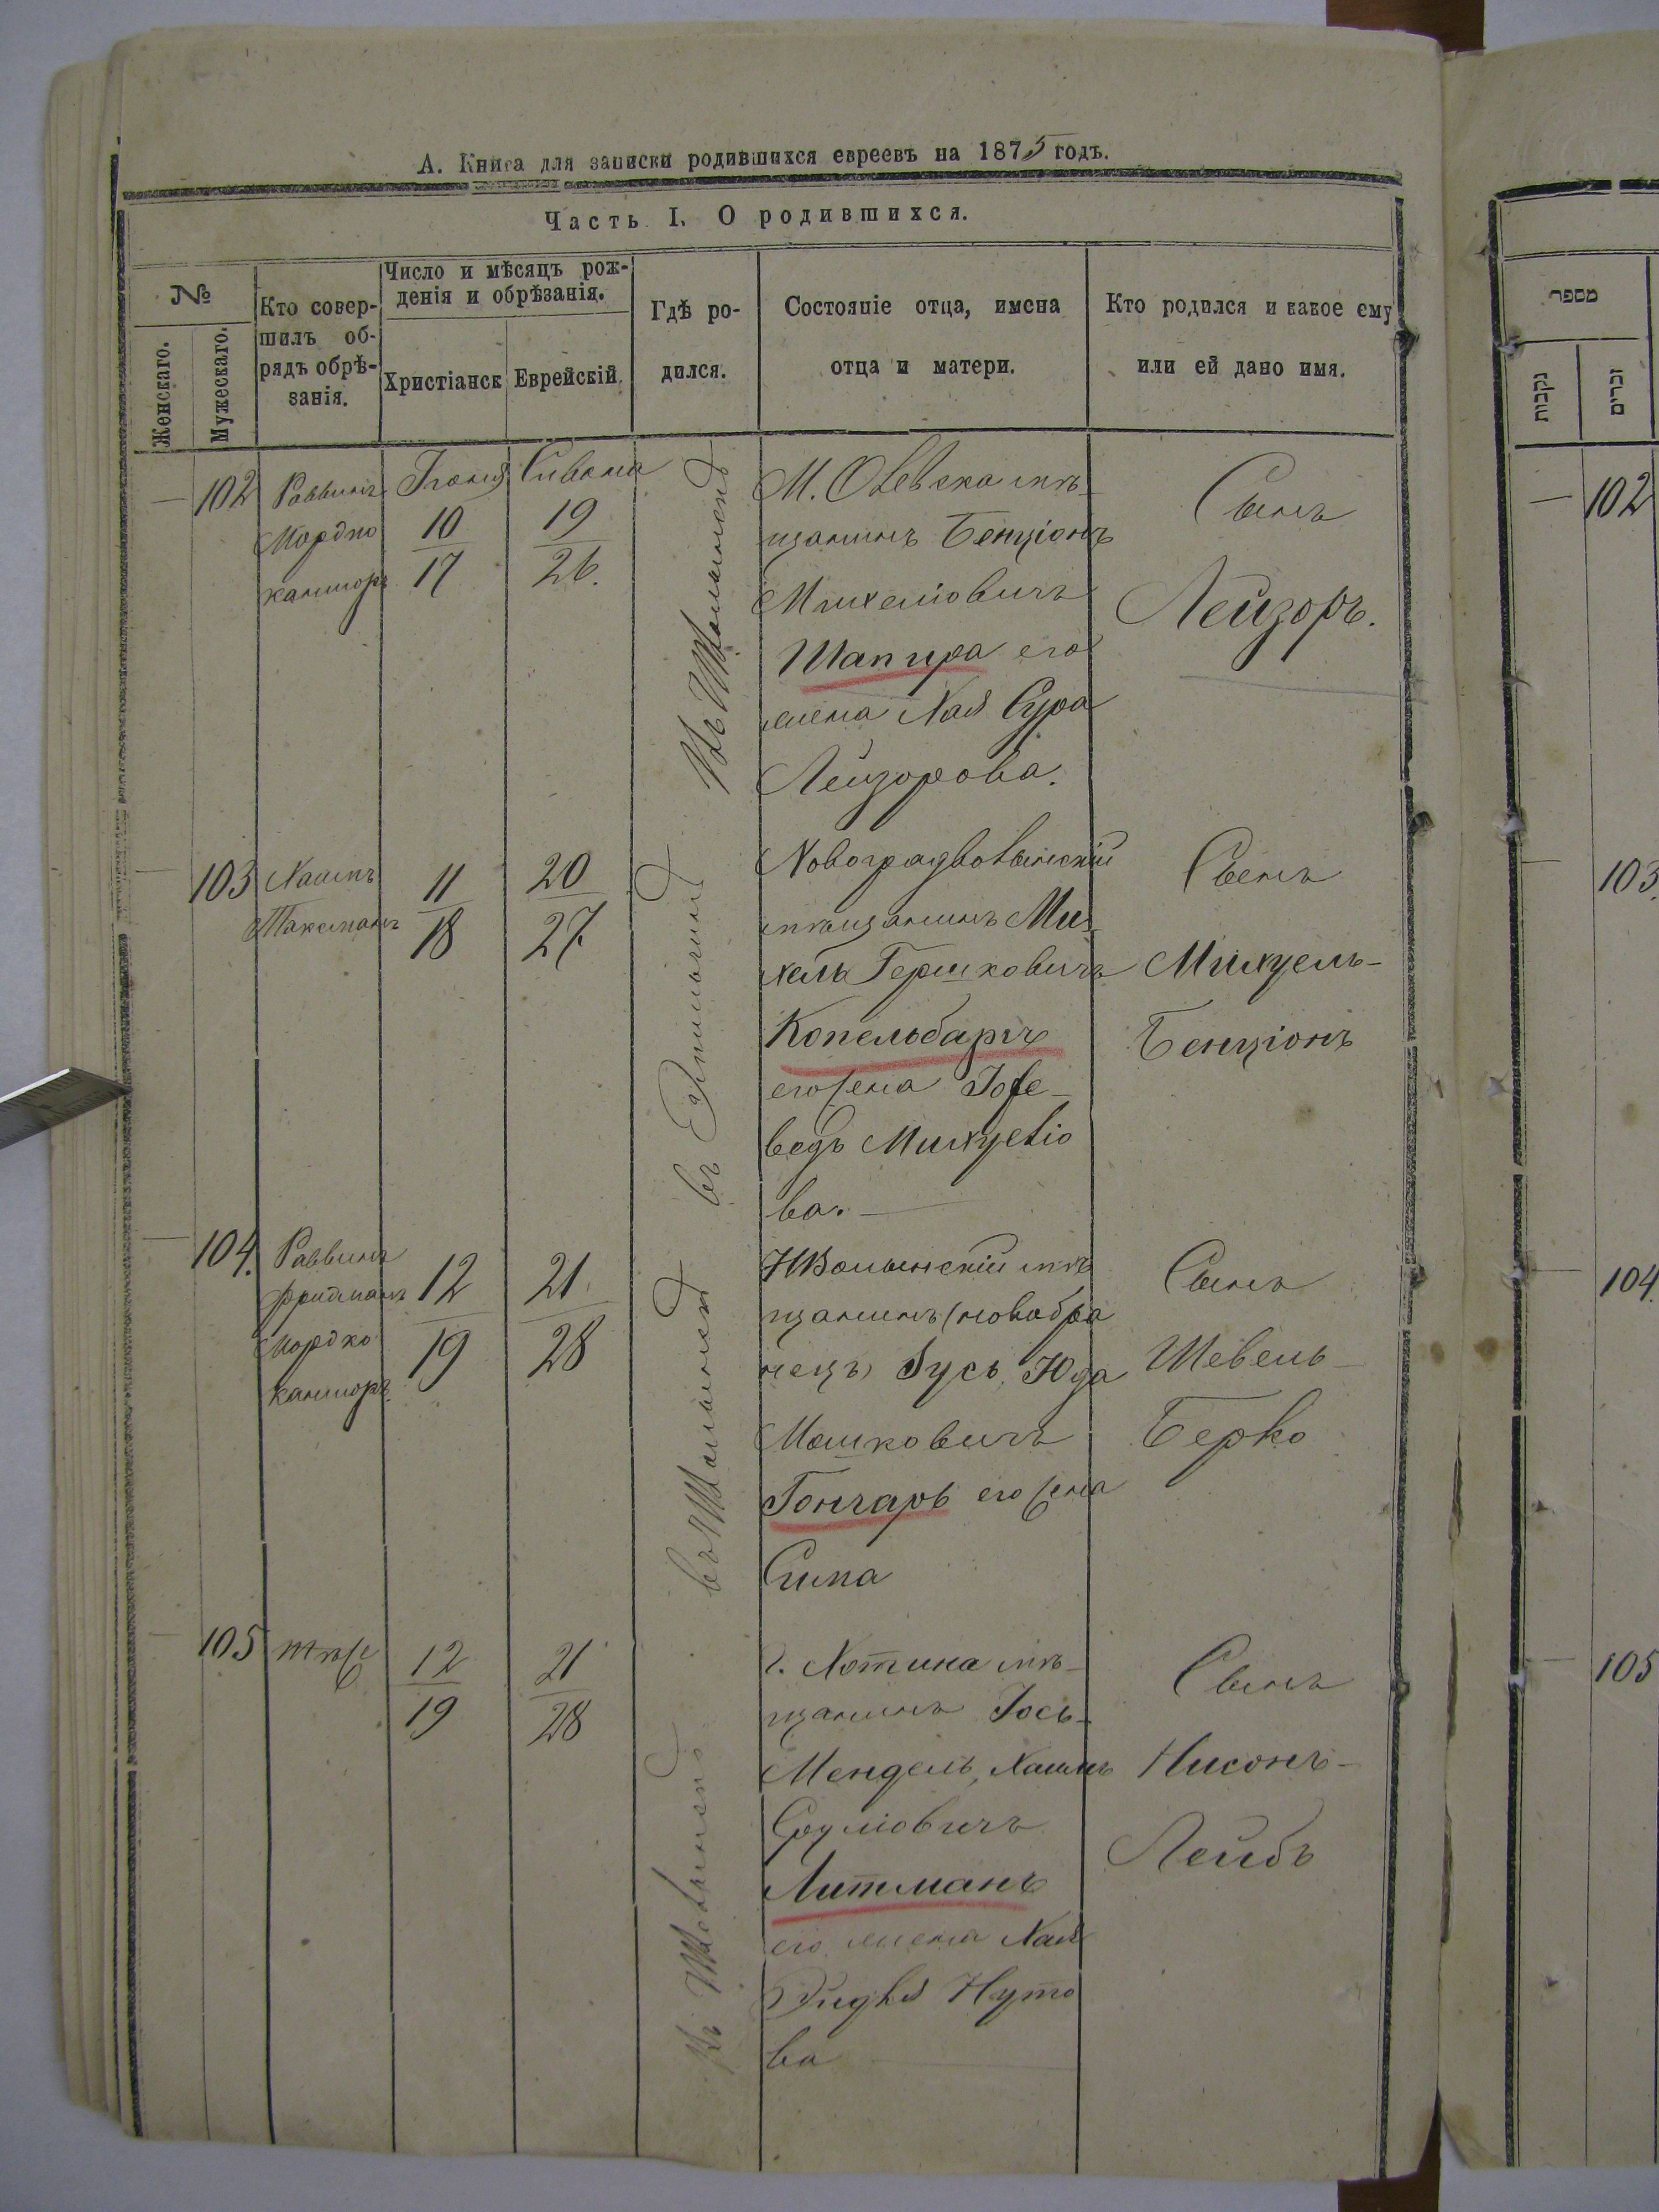 А. Книга для записки родившихся евреевъ на 1875 годъ.
Часть I. О родившихся.
№
Женскаго.
Мужескаго.
Кто совер-
шилъ об-
рядъ обрѣ-
занія.
Число и мѣсяцъ рож-
денія и обрѣзанія.
Христіанск
Еврейскій.
Гдѣ ро-
дился.
Состояніе отца, имена
отца и матери.
Кто родился и какое ему
или ей дано имя.
— 102
Раввинъ
Мордко
канторъ
Іюня
10
17
Сивана
19
26.
М. Олевска мѣ-
щанинъ Бенціонъ
Михеліовичъ
Шапира его
жена Хая Сура
Лейзорова.
Сынъ
Лейзоръ.
— 103
Хаимъ
Таксманъ
11
18
20
27.
Новоградволынскій
мѣщанинъ Ми-
хель Гершковичъ
Копельбаргъ
его жена Іохе-
ведъ Михуеліо
ва.
Сынъ
Михуель-
Бенціонъ
— 104.
Раввинъ
Фридманъ
Мордко
канторъ
12
19
21
28
НВолынскій мѣ
щанинъ (новобра
нецъ) Зусь Юда
Мошковичъ
Гончаръ его жена
Сима
Сынъ
Шевель-
Берко
— 105
тѣ же
12
19
21
28
г. Хотина мѣ-
щанинъ Іось-
Мендель, Хаимъ
Сруліовичъ
Литманъ
его жена Хая
Нуто
ва
Сынъ
Нисонъ-
Лейбъ
מספר
נקבות
זכרים
— 102
— 103.
— 104.
— 105